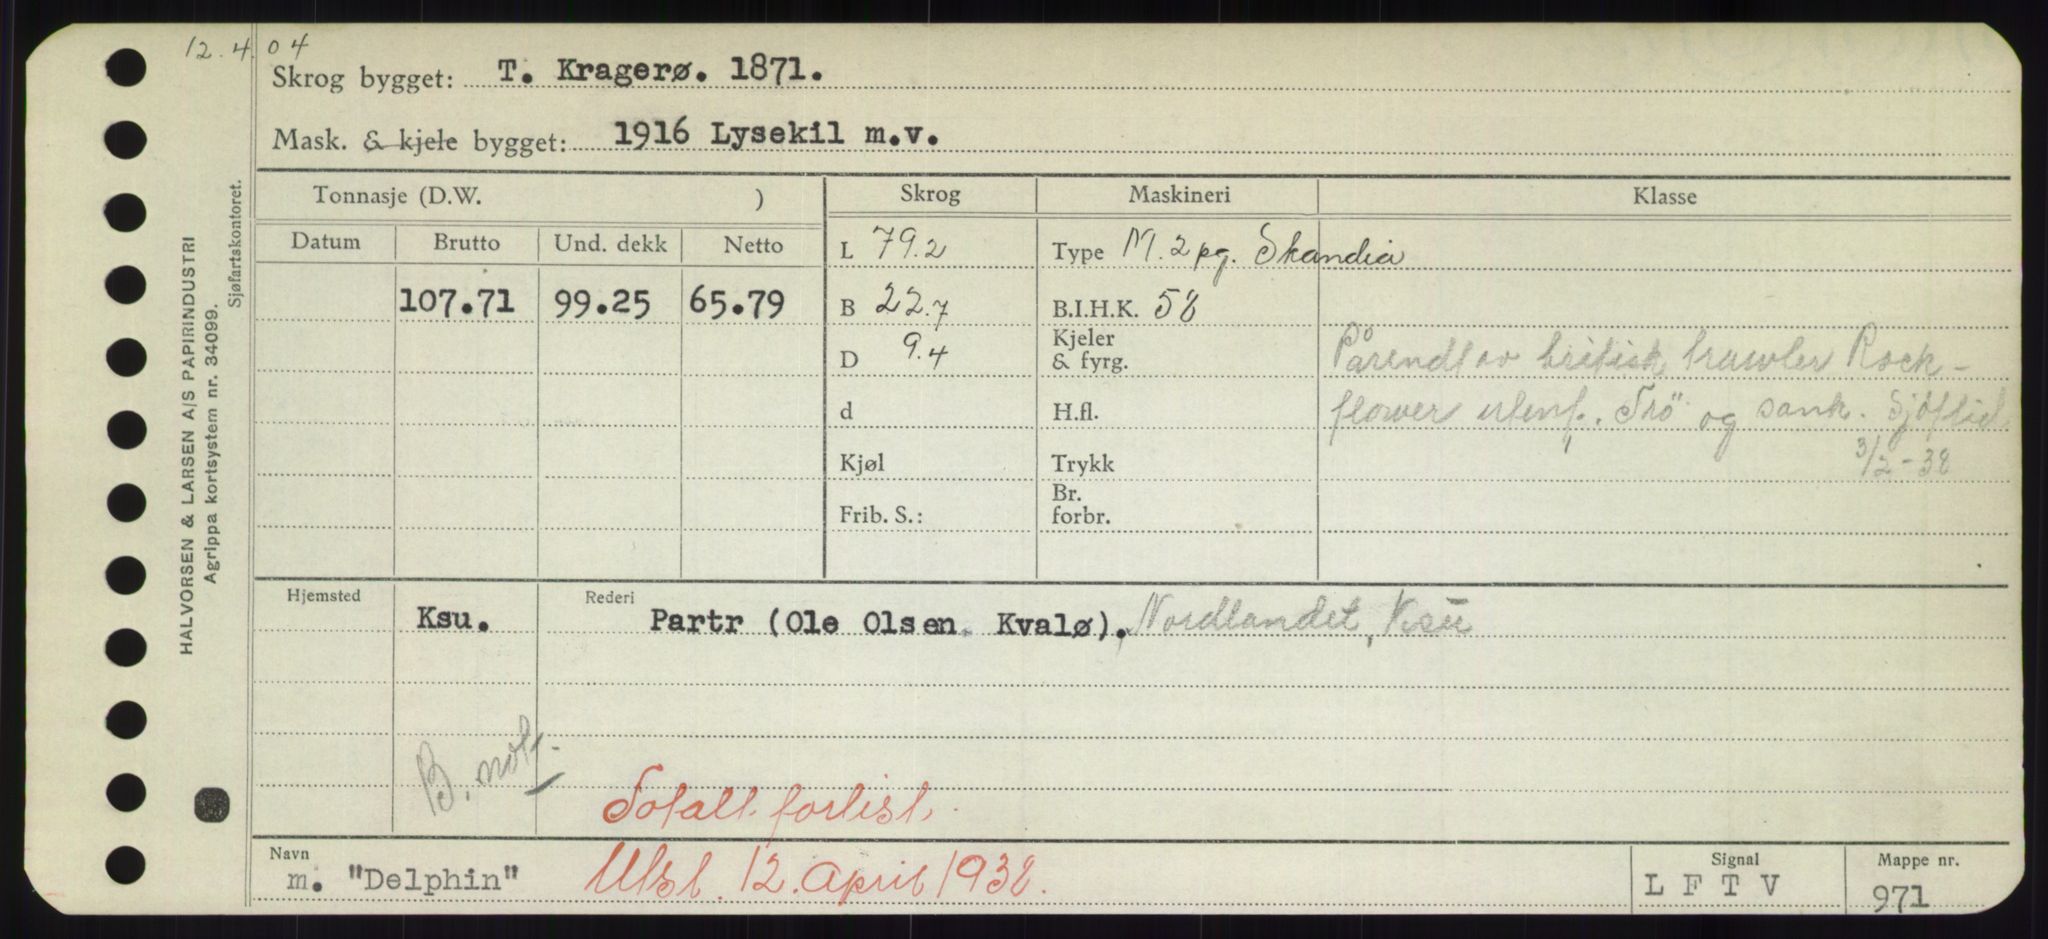 12.4.04
Skrog bygget: T. Kragerø. 1871.
Mask. & kjele bygget: 1916 Lysekil m.v.
HALVORSEN & LARSEN A/S PAPIRINDUSTRI
Agrippa kortsystem nr. 34099.
Sjøfartskontoret.
Tonnasje (D.W. ) Skrog Maskineri Klasse
Datum Brutto Und. dekk Netto
107.71 99.25 65.79
L 79.2
B 22.7
D 9.4
d
Kjøl
Frib. S.:
Type M. 2 pg. Skandia
B.I.H.K. 58
Kjeler
& fyrg.
H.fl.
Trykk
Br.
forbr.
Pårendt av britisk trawler Rock-
flower utenf. og sank. Sjöftid
3/2-38
Hjemsted Ksu.
Rederi Partr (Ole Olsen Kvalø), Nordlandet, Ksu
B. not.
Totalt forlist.
Navn m. "Delphin" Utsl. 12. April 1938.
Signal L F T V
Mappe nr. 971